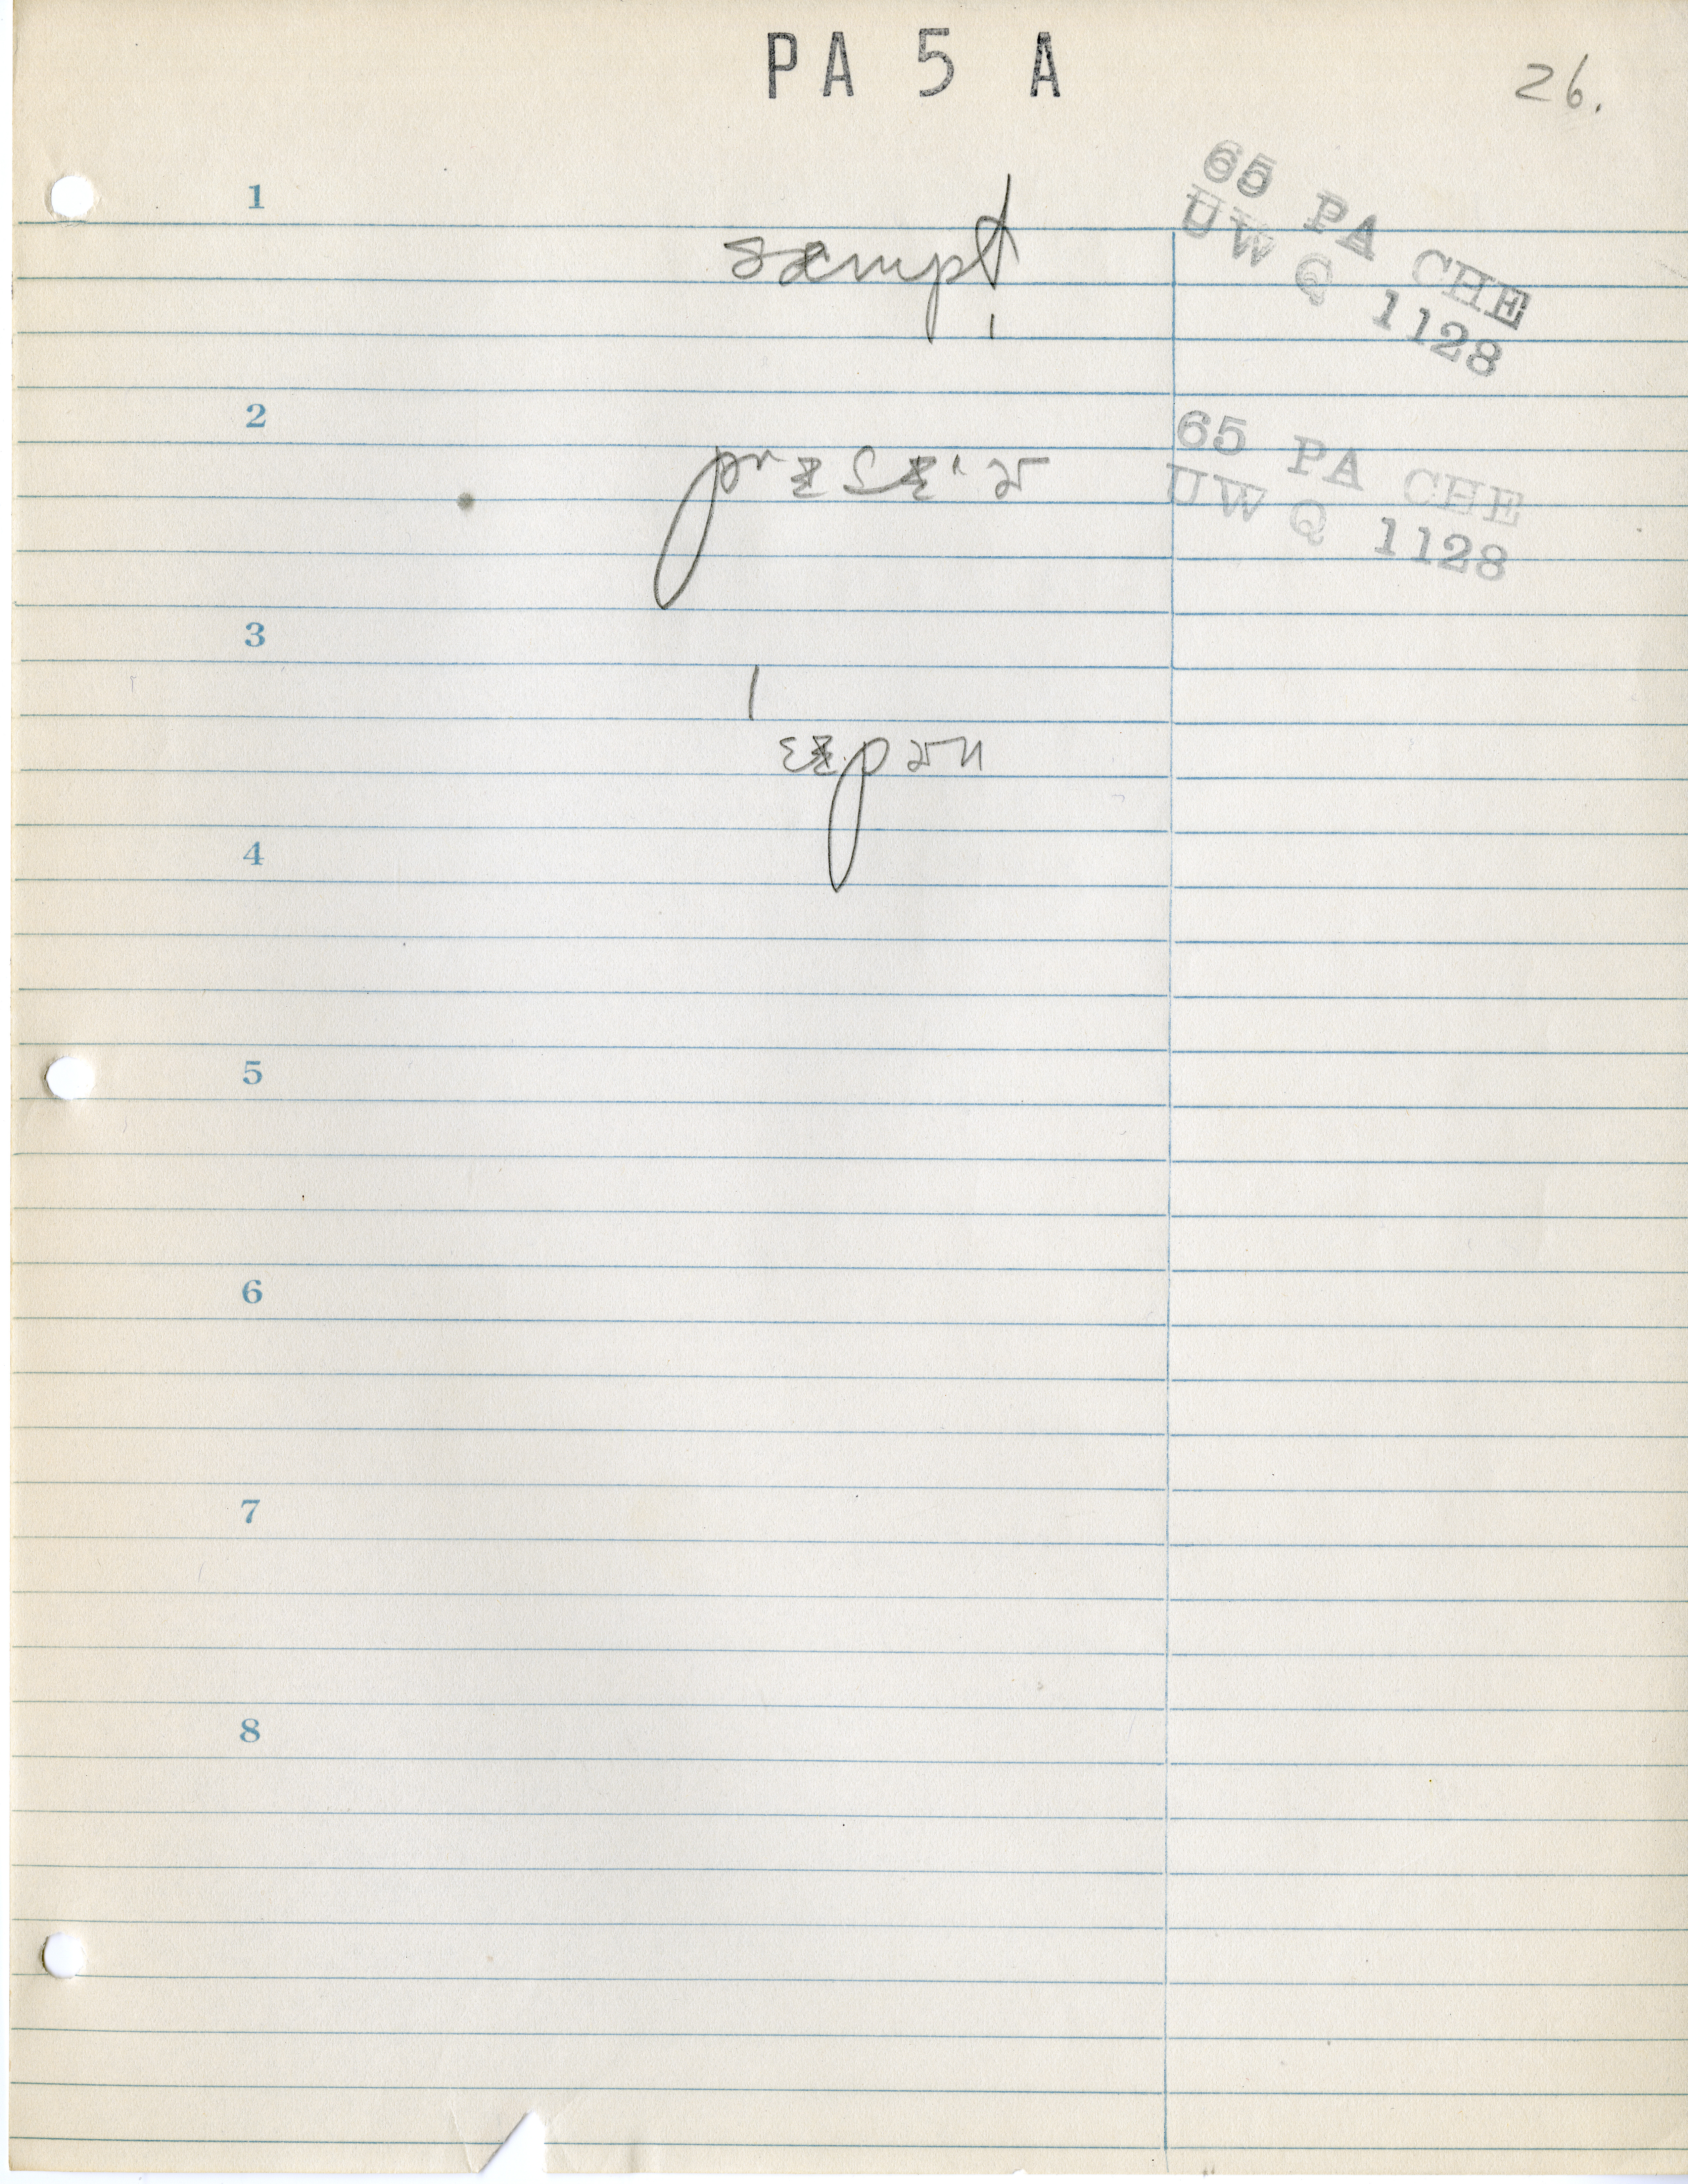 PA 5 A
26.
1
65 PA CHE
UW Q 1128
2
65 PA CHE
UW Q 1128
3
4
5
6
7
8